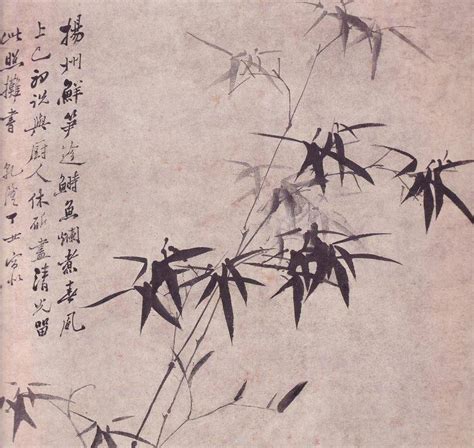 揚州鮮笋趁鰣魚爛煮春風
上巳初說與厨人休斫盡清光留
此照攤書 乾隆